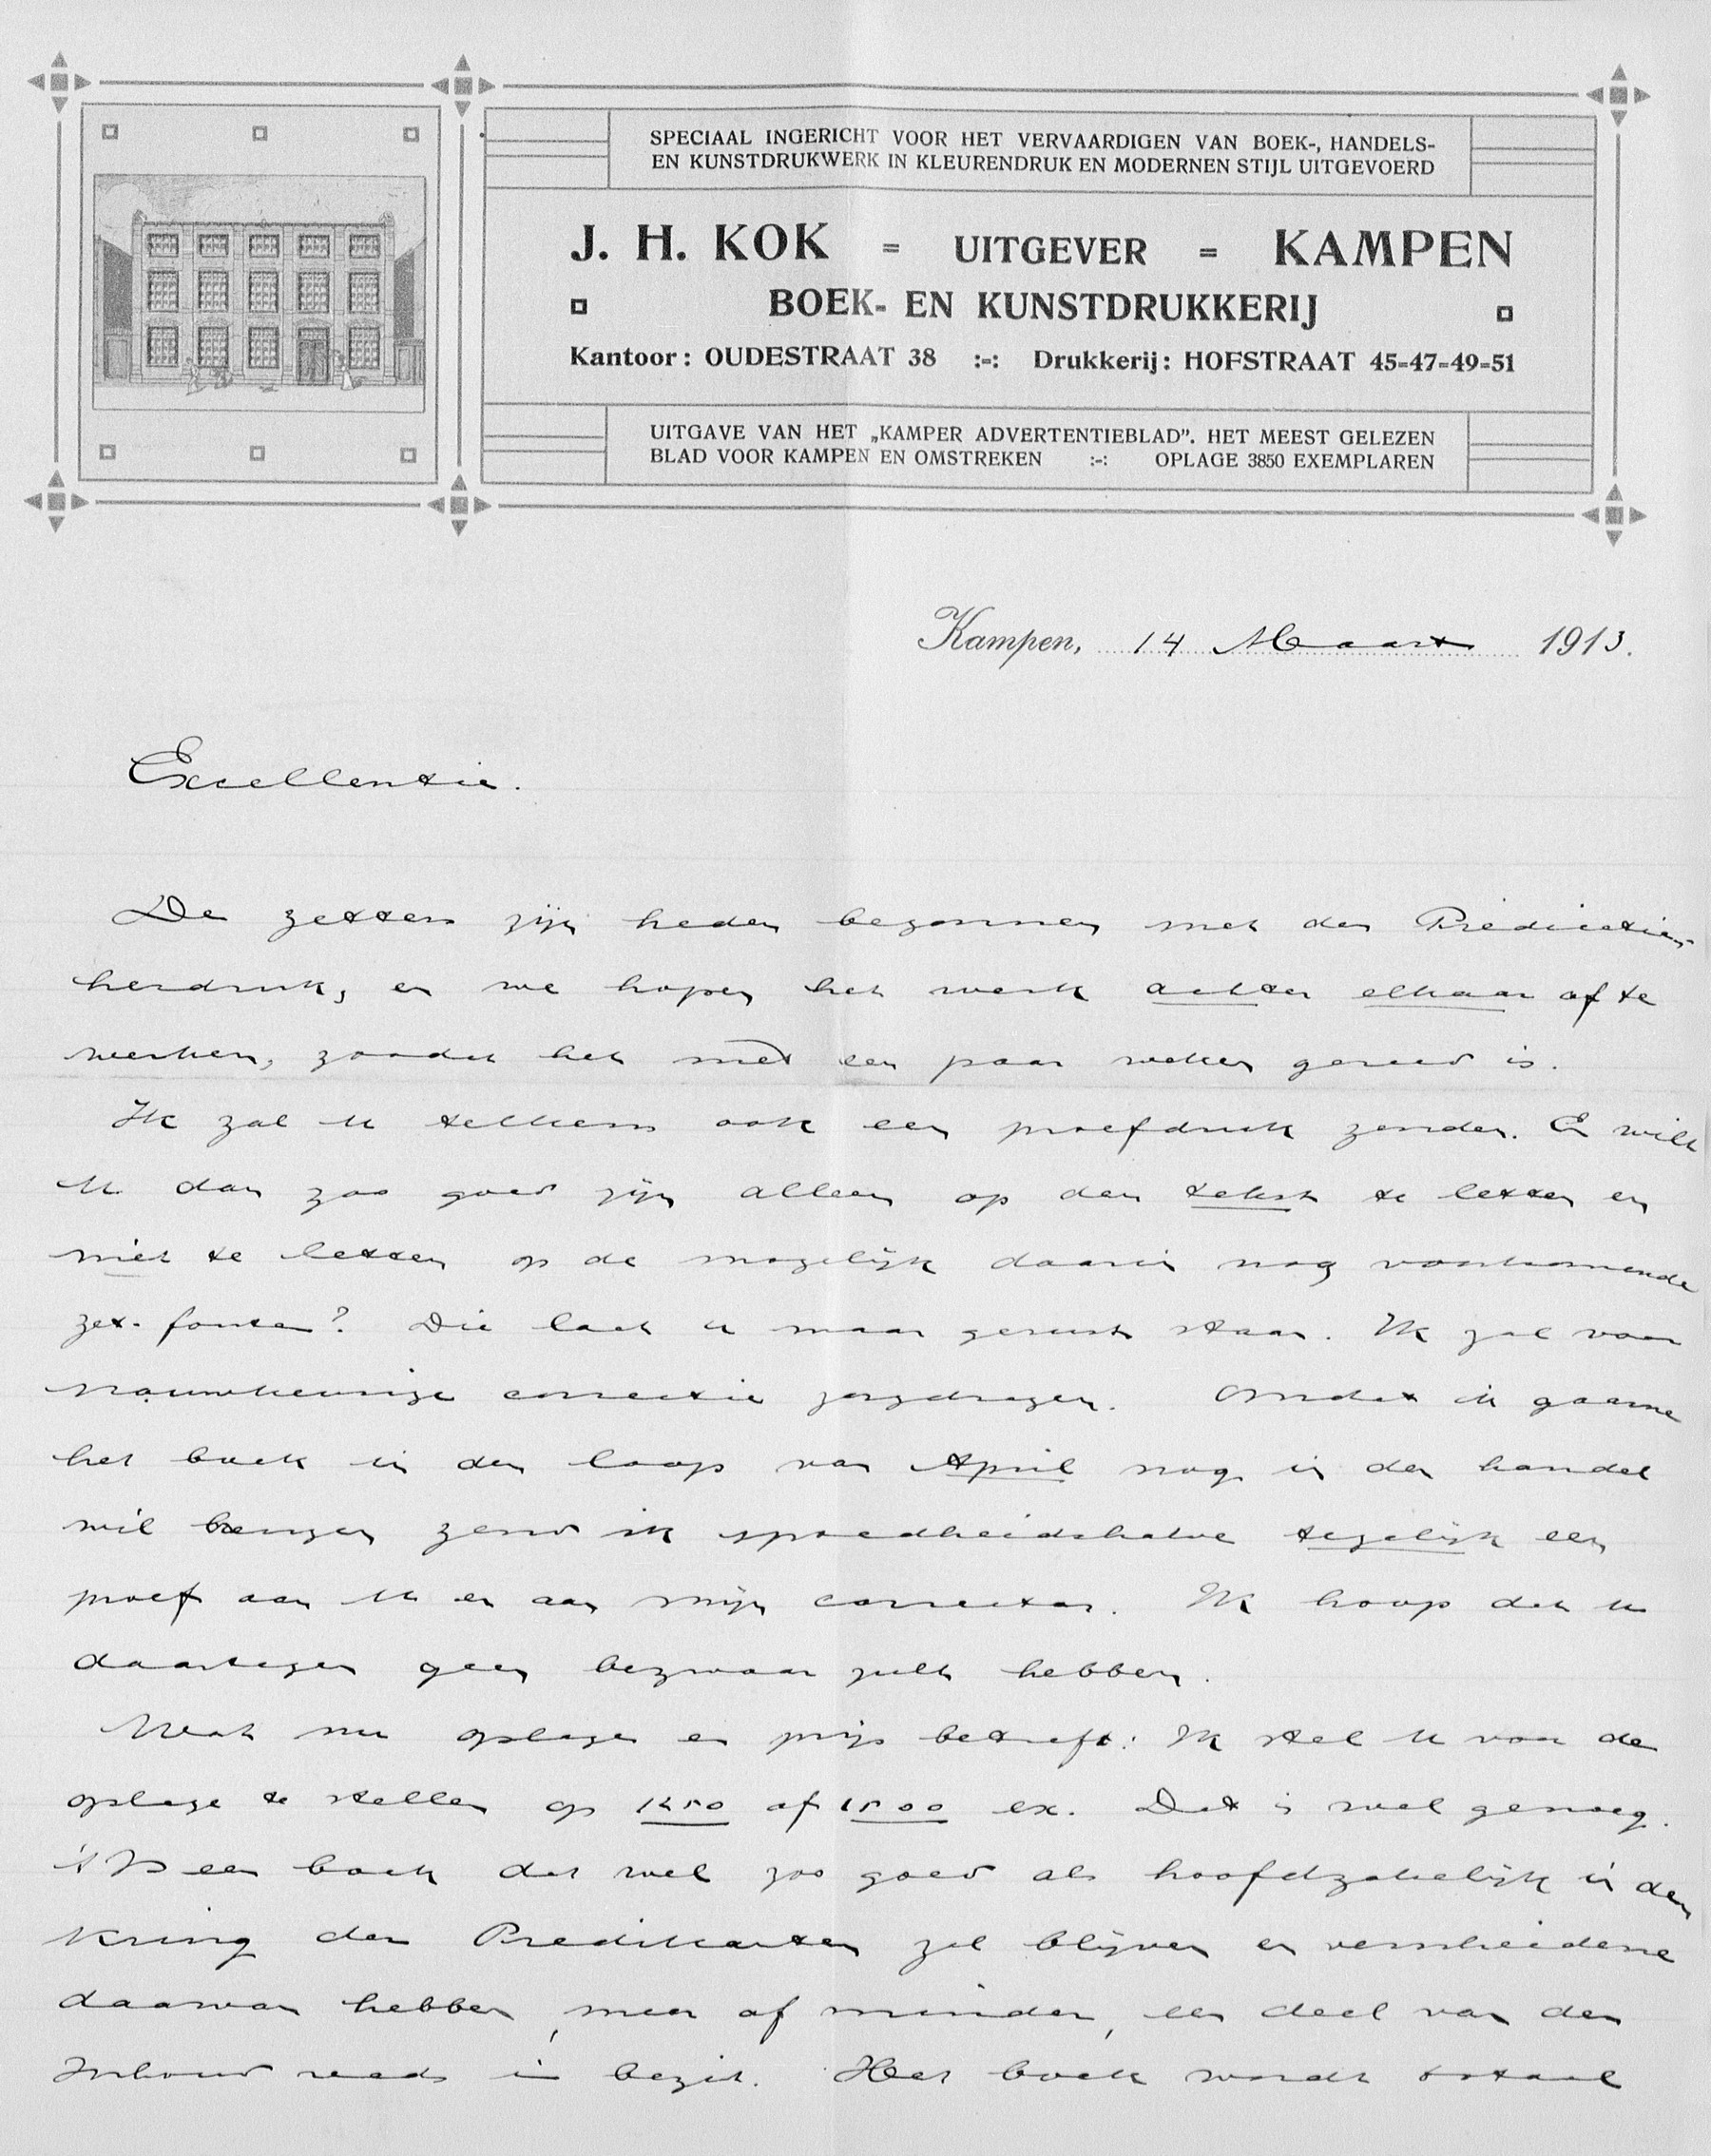 SPECIAAL INGERICHT VOOR HET VERVAARDIGEN VAN BOEK-, HANDELS-
EN KUNSTDRUKWERK IN KLEURENDRUK EN MODERNEN STIJL UITGEVOERD
J. H. KOK = UITGEVER = KAMPEN
BOEK- EN KUNSTDRUKKERIJ
Kantoor: OUDESTRAAT 38 :-: Drukkerij: HOFSTRAAT 45-47-49-51
UITGAVE VAN HET „KAMPER ADVERTENTIEBLAD”. HET MEEST GELEZEN
BLAD VOOR KAMPEN EN OMSTREKEN :-: OPLAGE 3850 EXEMPLAREN
Kampen, 14 Maart 1913.
Excellentie.
De zetters zijn heden begonnen met den
herdruk, en we hopen het werk achter elkaar af te
werken, zoodat het met een paar weken gereed is.
Ik zal U telkens ook een proefdruk zenden. En wilt
U dan zoo goed zijn alleen op den tekst te letten en
niet te letten op de mogelijk daarin nog voorkomende
zet-fouten? Die laat u maar gerust staan. Ik zal voor
nauwkeurige correctie zorgdragen. Omdat ik gaarne
het boek in den loop van April nog in den handel
wil brengen zend ik spoedheidshalve tegelijk een
proef aan U en aan mijn corrector. Ik hoop dat U
daartegen geen bezwaar zult hebben.
Wat nu oplage en prijs betreft: Ik stel U voor de
oplage te stellen op 1250 of 1500 ex. Dat is wel genoeg.
't Is een boek dat wel zoo goed als hoofdzakelijk in den
kring der Predikanten zal blijven en verscheidene
daarvan hebben, meer of minder, een deel van den
Inhoud reeds in bezit. Het boek wordt totaal